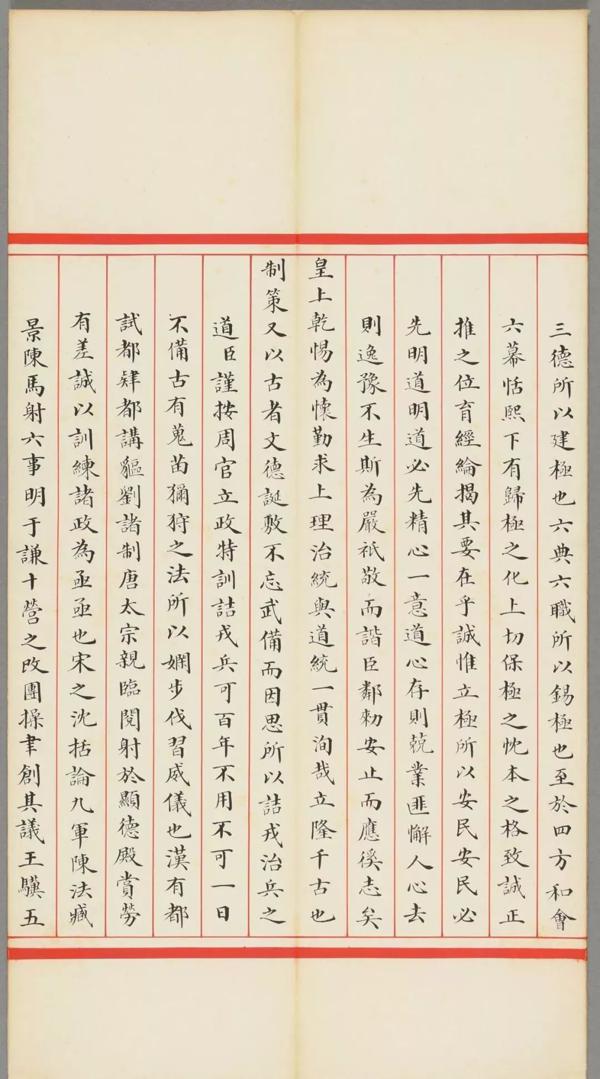 三德所以建極也六典六職所以錫極也至於四方和會
六幕恬熙下有歸極之化上切保極之忱本之格致誠正
推之位育經綸揭其要在乎誠惟立極所以安民安民必
先明道明道必先精心一意道心存則兢業匪懈人心去
則逸豫不生斯為嚴祗敬而諧臣鄰勑安止而應徯志矣
皇上乾惕為懷勤求上理治統與道統一貫洵哉立隆千古也
制策又以古者文德誕敷不忘武備而因思所以詰戎治兵之
道臣謹按周官立政特訓詰戎兵可百年不用不可一日
不備古有蒐苗獮狩之法所以嫻步伐習威儀也漢有都
試都肄都講貙劉諸制唐太宗親臨閱射於顯德殿賞勞
有差誠以訓練諸政為亟亟也宋之沈括論九軍陳法臧
景陳馬射六事明于謙十營之改團操聿創其議王驥五